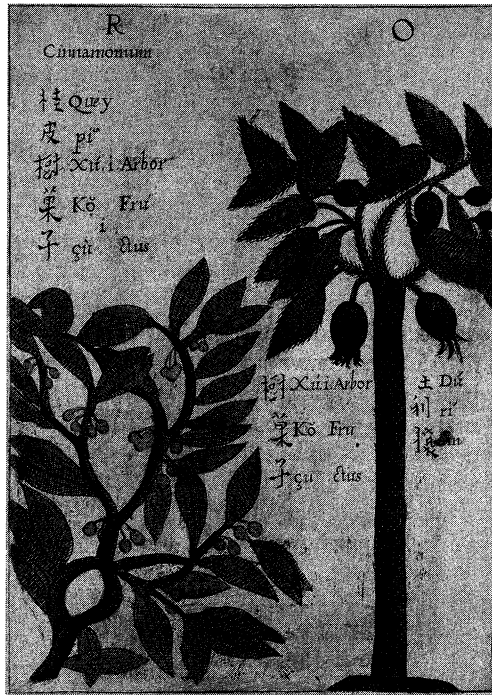 R
Cinnamomum
桂 Quey
皮 pi
樹 Xú. i Arbor
菓 Kò Fru
i
子 çù ctus
O
樹 Xú i Arbor
菓 Kò Fru
子 çù ctus
土 Dú
利 ri